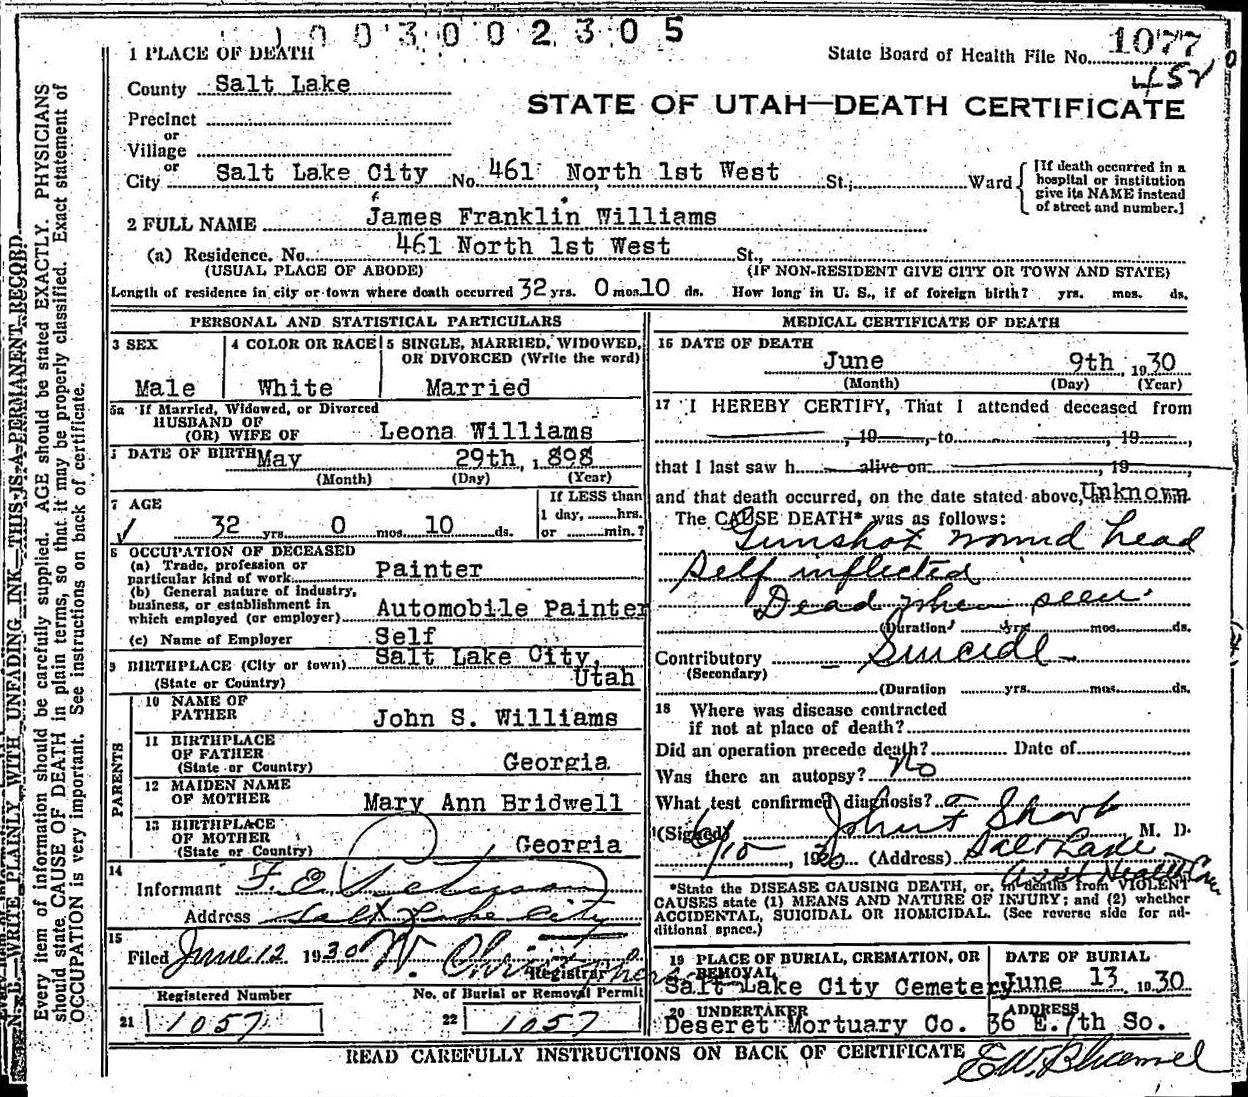 1003002305
1 PLACE OF DEATH
State Board of Health File No. 1077
458
County Salt Lake
STATE OF UTAH—DEATH CERTIFICATE
Precinct
or
Village
or
City Salt Lake City No. 461 North 1st West St.; Ward
[If death occurred in a
hospital or institution
give its NAME instead
of street and number.]
2 FULL NAME James Franklin Williams
(a) Residence. No. 461 North 1st West St.,
(USUAL PLACE OF ABODE) (IF NON-RESIDENT GIVE CITY OR TOWN AND STATE)
Length of residence in city or town where death occurred 32 yrs. 0 mos. 10 ds. How long in U. S., if of foreign birth? yrs. mos. ds.
PERSONAL AND STATISTICAL PARTICULARS
3 SEX
Male
4 COLOR OR RACE
White
5 SINGLE, MARRIED, WIDOWED,
OR DIVORCED (Write the word)
Married
5a If Married, Widowed, or Divorced
HUSBAND OF
(OR) WIFE OF Leona Williams
DATE OF BIRTH May 29th, 1898
(Month) (Day) (Year)
7 AGE
32 yrs. 0 mos. 10 ds.
If LESS than
1 day, hrs.
or min.?
8 OCCUPATION OF DECEASED
(a) Trade, profession or
particular kind of work Painter
(b) General nature of industry,
business, or establishment in
which employed (or employer) Automobile Painter
(c) Name of Employer Self
9 BIRTHPLACE (City or town) Salt Lake City,
(State or Country) Utah
PARENTS
10 NAME OF
FATHER John S. Williams
11 BIRTHPLACE
OF FATHER
(State or Country) Georgia
12 MAIDEN NAME
OF MOTHER Mary Ann Bridwell
13 BIRTHPLACE
OF MOTHER
(State or Country) Georgia
14
Informant F. E. Peterson
Address Salt Lake City
15
Filed June 12 1930 W. Christopherson
Registrar
Registered Number
21 1057
No. of Burial or Removal Permit
22 1057
MEDICAL CERTIFICATE OF DEATH
16 DATE OF DEATH
June 9th, 1930
(Month) (Day) (Year)
17 I HEREBY CERTIFY, That I attended deceased from
, 19 , to , 19 ,
that I last saw h alive on , 19 ,
and that death occurred, on the date stated above, Unknown m.
The CAUSE DEATH* was as follows:
Gunshot wound head
Self inflected
Dead when seen
(Duration yrs. mos. ds.
Contributory Suicide
(Secondary)
(Duration yrs. mos. ds.
18 Where was disease contracted
if not at place of death?
Did an operation precede death? Date of
Was there an autopsy? No
What test confirmed diagnosis?
(Signed) John F Sharp M. D.
6/10, 1930 (Address) Salt Lake
Asst Health Com
*State the DISEASE CAUSING DEATH, or, in deaths from VIOLENT
CAUSES state (1) MEANS AND NATURE OF INJURY; and (2) whether
ACCIDENTAL, SUICIDAL OR HOMICIDAL. (See reverse side for ad-
ditional space.)
19 PLACE OF BURIAL, CREMATION, OR
REMOVAL
Salt Lake City Cemetery
DATE OF BURIAL
June 13, 1930
20 UNDERTAKER
Deseret Mortuary Co.
ADDRESS
36 E. 7th So.
READ CAREFULLY INSTRUCTIONS ON BACK OF CERTIFICATE
N. B.—WRITE PLAINLY WITH UNFADING INK—THIS IS A PERMANENT RECORD
Every item of information should be carefully supplied. AGE should be stated EXACTLY. PHYSICIANS
should state CAUSE OF DEATH in plain terms, so that it may be properly classified. Exact statement of
OCCUPATION is very important. See instructions on back of certificate.